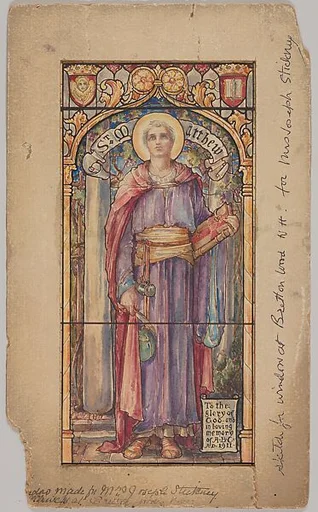 St. Matthew
To the
glory of
God and
in loving
memory
of A·B·C
AD. 1911
sketch for window at Bretton Wood N.H. for Mrs Joseph Stickney
made for Mrs Joseph Stickney